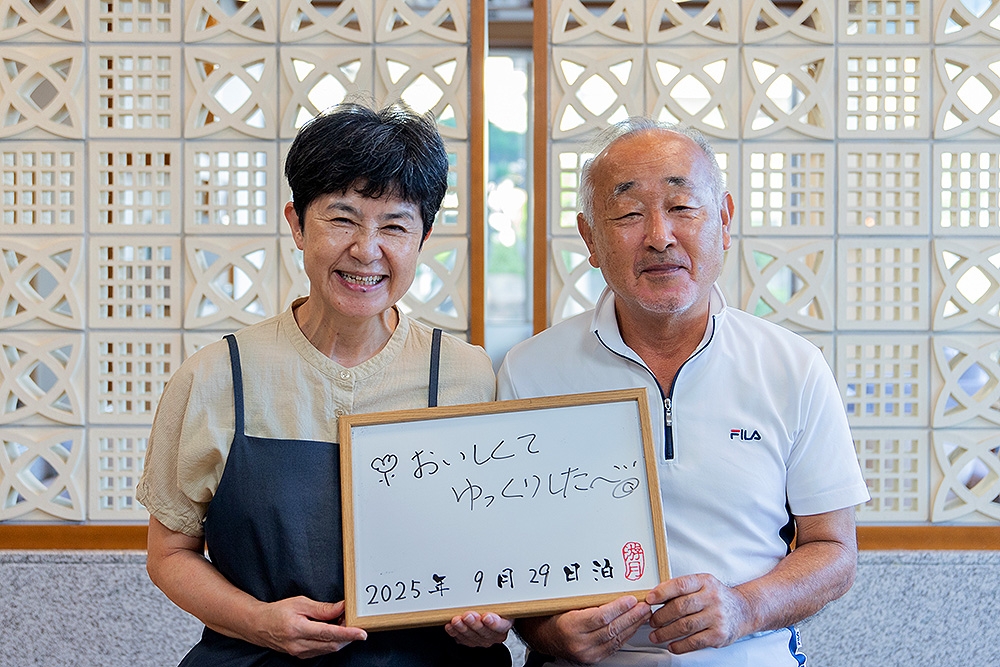 おいしくて
ゆっくりした〜
2025年 9月29日泊
游月
FILA